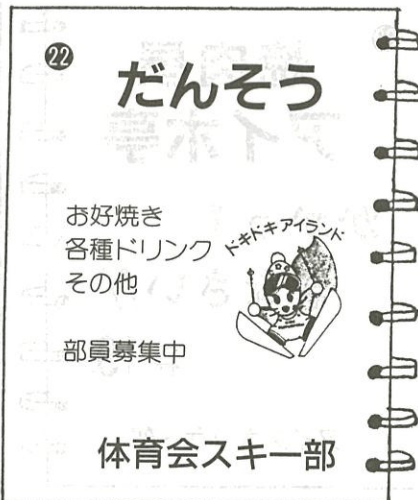 ㉒
だんそう
お好焼き
各種ドリンク
その他
ドキドキアイランド
部員募集中
体育会スキー部